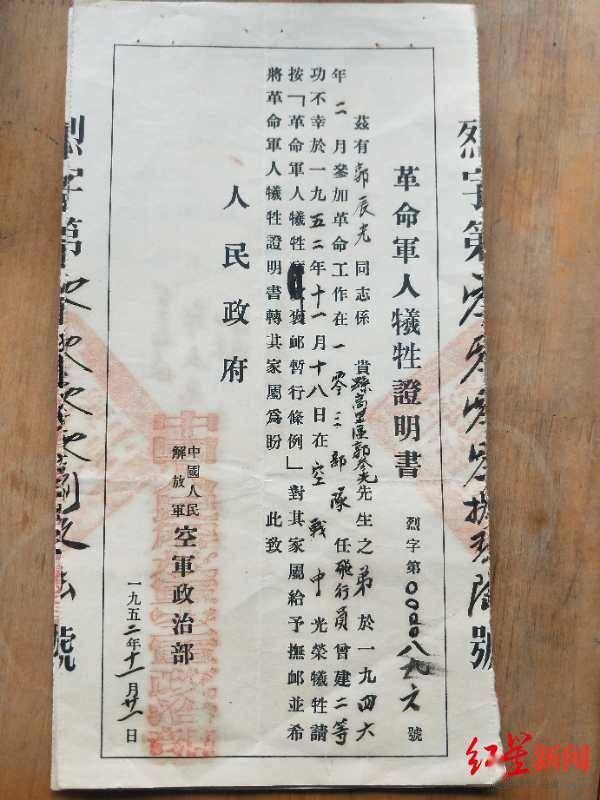 革命軍人犧牲證明書
烈字第000八九六號
茲有郭辰光同志係 貴縣高里區郭奎光先生之弟於一九四六
年二月參加革命工作在一零三部隊任飛行員曾建二等
功不幸於一九五二年十一月十八日在空戰中光榮犧牲請
按「革命軍人犧牲褒卹暫行條例」對其家屬給予撫卹並希
將革命軍人犧牲證明書轉其家屬為盼 此致
人民政府
中國人民解放軍空軍政治部
一九五二年十一月廿一日
烈字第
號
烈字第
號
红星新闻